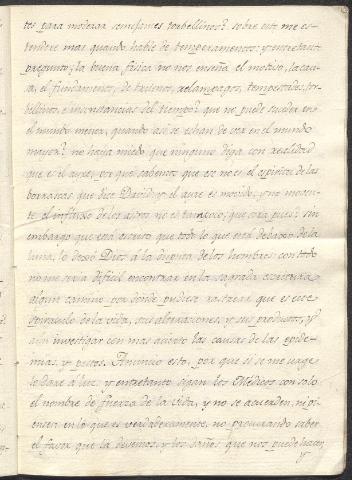 tes para moderar semejantes torbellinos? sobre esto me es-
tendere mas quando hable de temperamentos: y entretanto
pregunto; la buena fisica no nos enseña el motivo, la cau-
sa, el fundamento, de truenos, relampagos, tempestades, tor-
bellinos, è inconstancias del tiempo? que no puede suceder en
el mundo menor, quando asi se echan de ver en el mundo
mayor? no haya miedo que ninguno diga con realidad
que es el ayre, por que sabemos que ese no es el espiritu de las
borrascas que dice David; y el ayre es movido, y no moven-
te. el influxo de los astros no es tampoco, que sera pues? sin
embargo que está escrito que todo lo que está debaxo de la
luna, lo dexó Dios á la disputa de los hombres: con todo
no me seria dificil encontrar en la sagrada escritura
algun camino por donde pudiese rastrear que es ese
espiraculo de la vida, sus alteraciones, y sus productos, y
aun investigar con mas acierto las causas de las epide-
mias, y pestes. Anuncio esto, por que si se me urge
le daré á luz: y entretanto sigan los Medicos con solo
el nombre de fuerza de la vida, y no se acuerden, ni pi-
ensen en lo que es verdaderamente, no procurando saber
el favor que la devemos, y los daños que nos puede hacer,
y